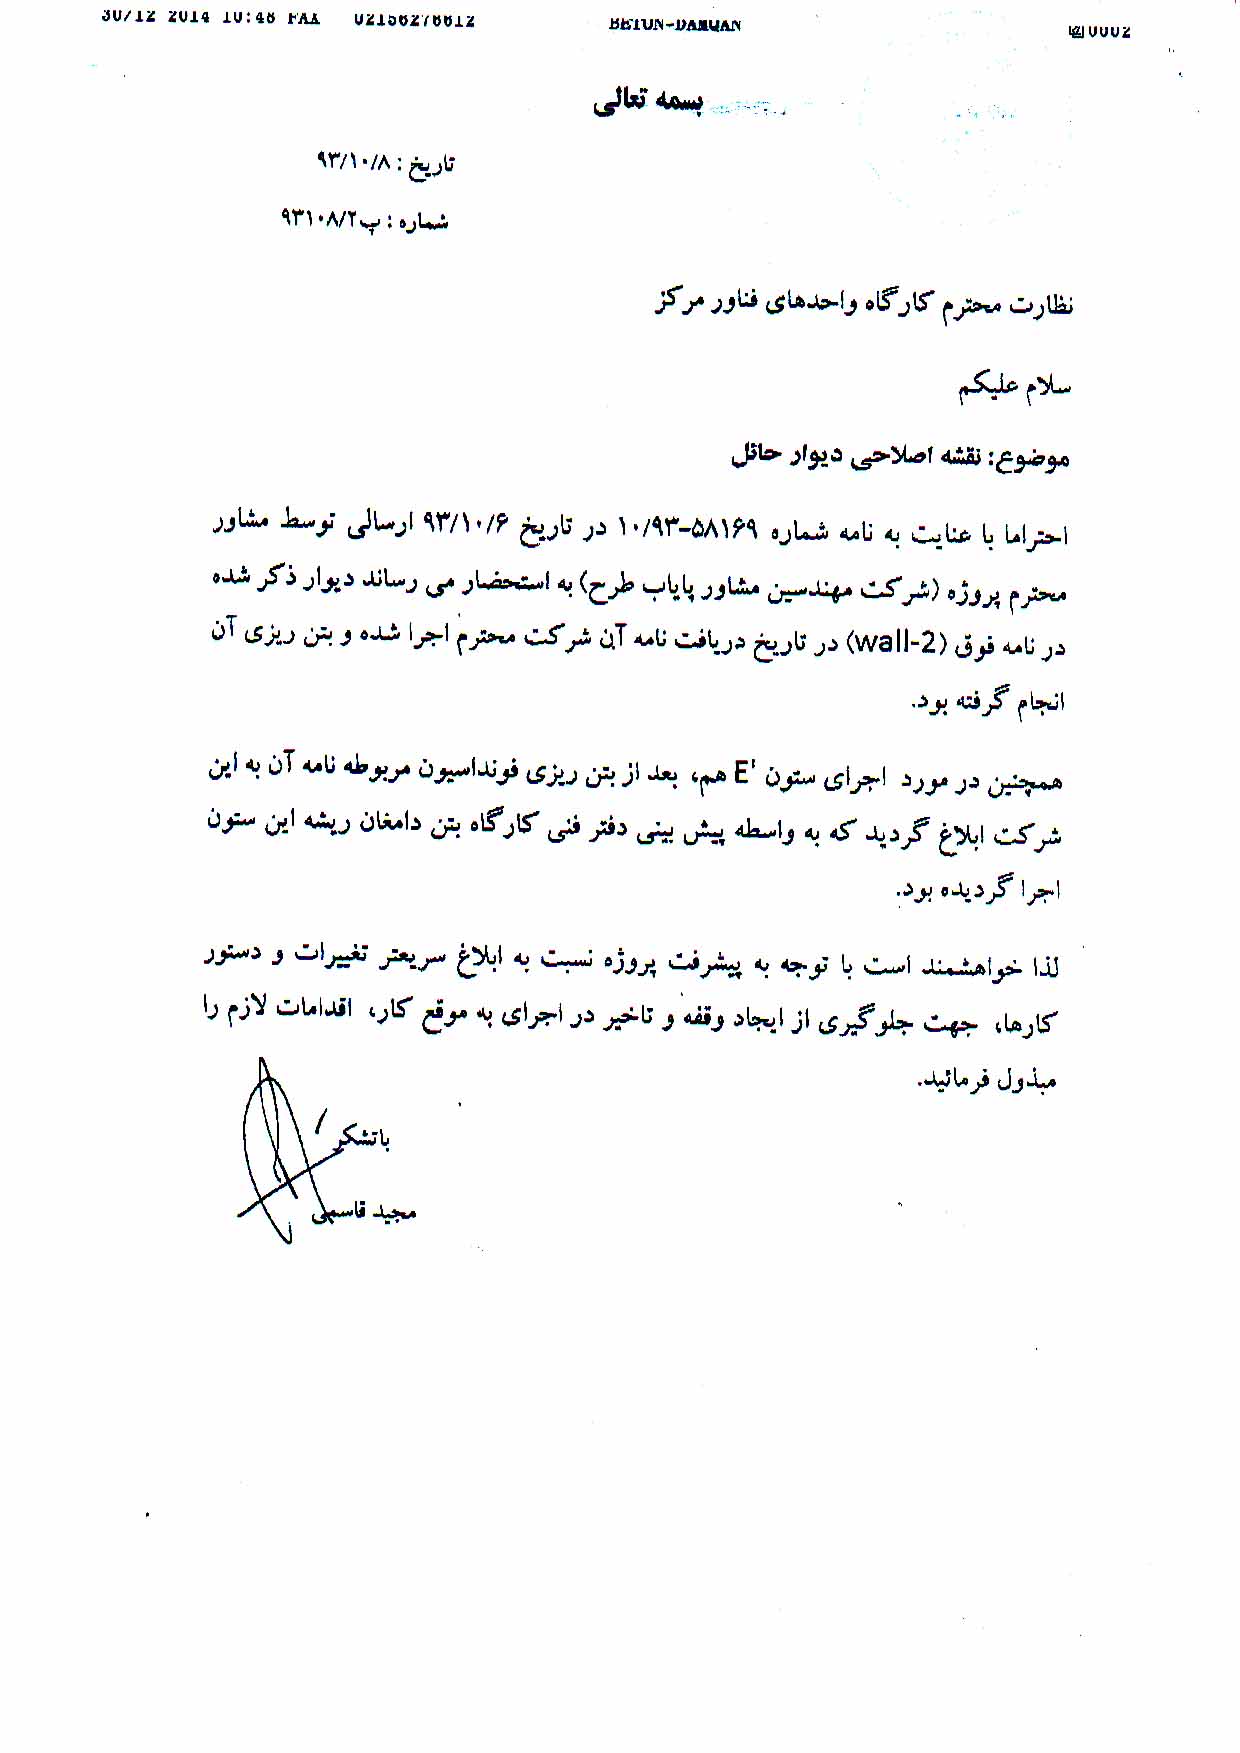 30/12 2014 10:48 FAX 02156276612 BETON-DAMQAN 0002
بسمه تعالی
تاریخ : ۹۳/۱۰/۸
شماره : پ۹۳۱۰۸/۲
نظارت محترم کارگاه واحدهای فناور مرکز
سلام علیکم
موضوع: نقشه اصلاحی دیوار حائل
احتراما با عنایت به نامه شماره ۵۸۱۶۹-۱۰/۹۳ در تاریخ ۹۳/۱۰/۶ ارسالی توسط مشاور
محترم پروژه (شرکت مهندسین مشاور پایاب طرح) به استحضار می رساند دیوار ذکر شده
در نامه فوق (wall-2) در تاریخ دریافت نامه آن شرکت محترم اجرا شده و بتن ریزی آن
انجام گرفته بود.
همچنین در مورد اجرای ستون E' هم، بعد از بتن ریزی فونداسیون مربوطه نامه آن به این
شرکت ابلاغ گردید که به واسطه پیش بینی دفتر فنی کارگاه بتن دامغان ریشه این ستون
اجرا گردیده بود.
لذا خواهشمند است با توجه به پیشرفت پروژه نسبت به ابلاغ سریعتر تغییرات و دستور
کارها، جهت جلوگیری از ایجاد وقفه و تاخیر در اجرای به موقع کار، اقدامات لازم را
مبذول فرمائید.
باتشکر
مجید قاسمی